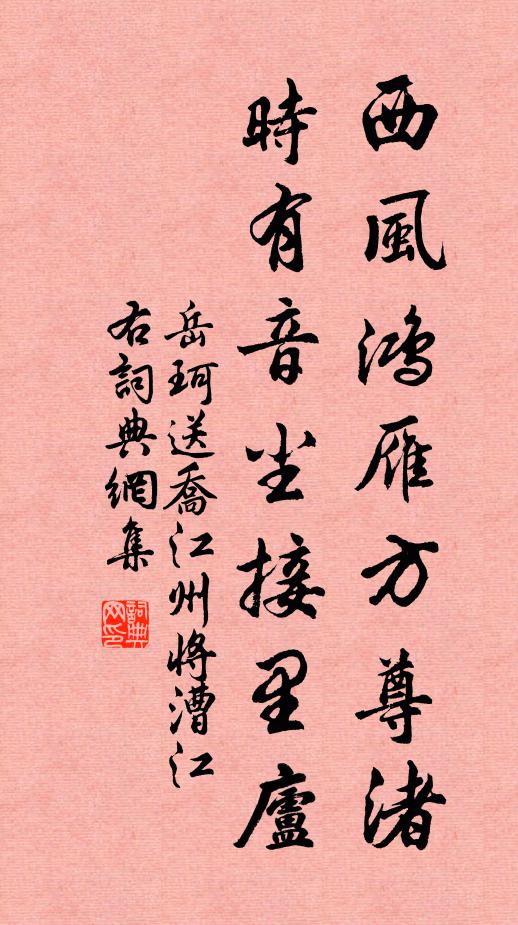 西風鴻雁方尊渚
時有音尘接里廬
岳珂送喬江州將漕江
右詞典網集
詞典
网印